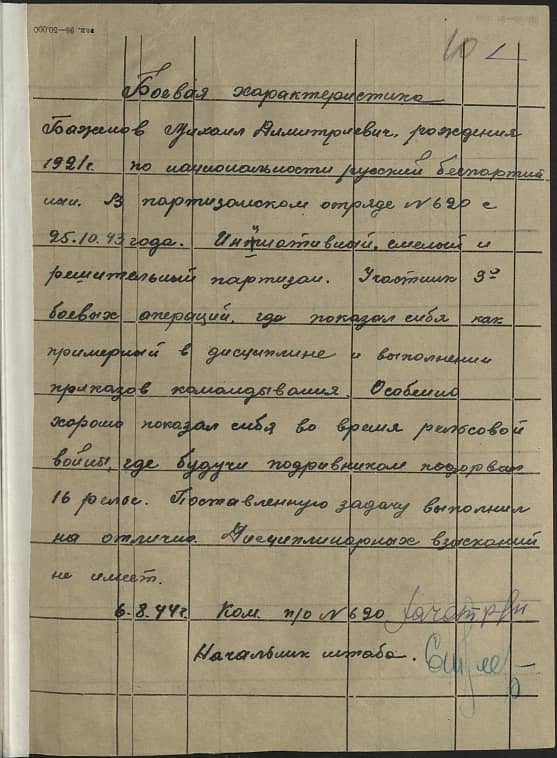 10
Боевая характеристика
Баженов Михаил Димитриевич, рождения
1921г. по национальности русский беспартий
ный. В партизанском отряде №620 с
25.10.43 года. Инициативный, смелый и
решительный партизан. Участник 3х
боевых операций, где показал себя как
примерный в дисциплине и выполнении
приказов командывания. Особенно
хорошо показал себя во время рельсовой
войны, где будучи подривником подорвал
16 рельс. Поставленную задачу выполнил
на отлично. Дисциплинарных взысканий
не имеет.
6.8.44г. Ком. п/о №620
Начальник штаба.